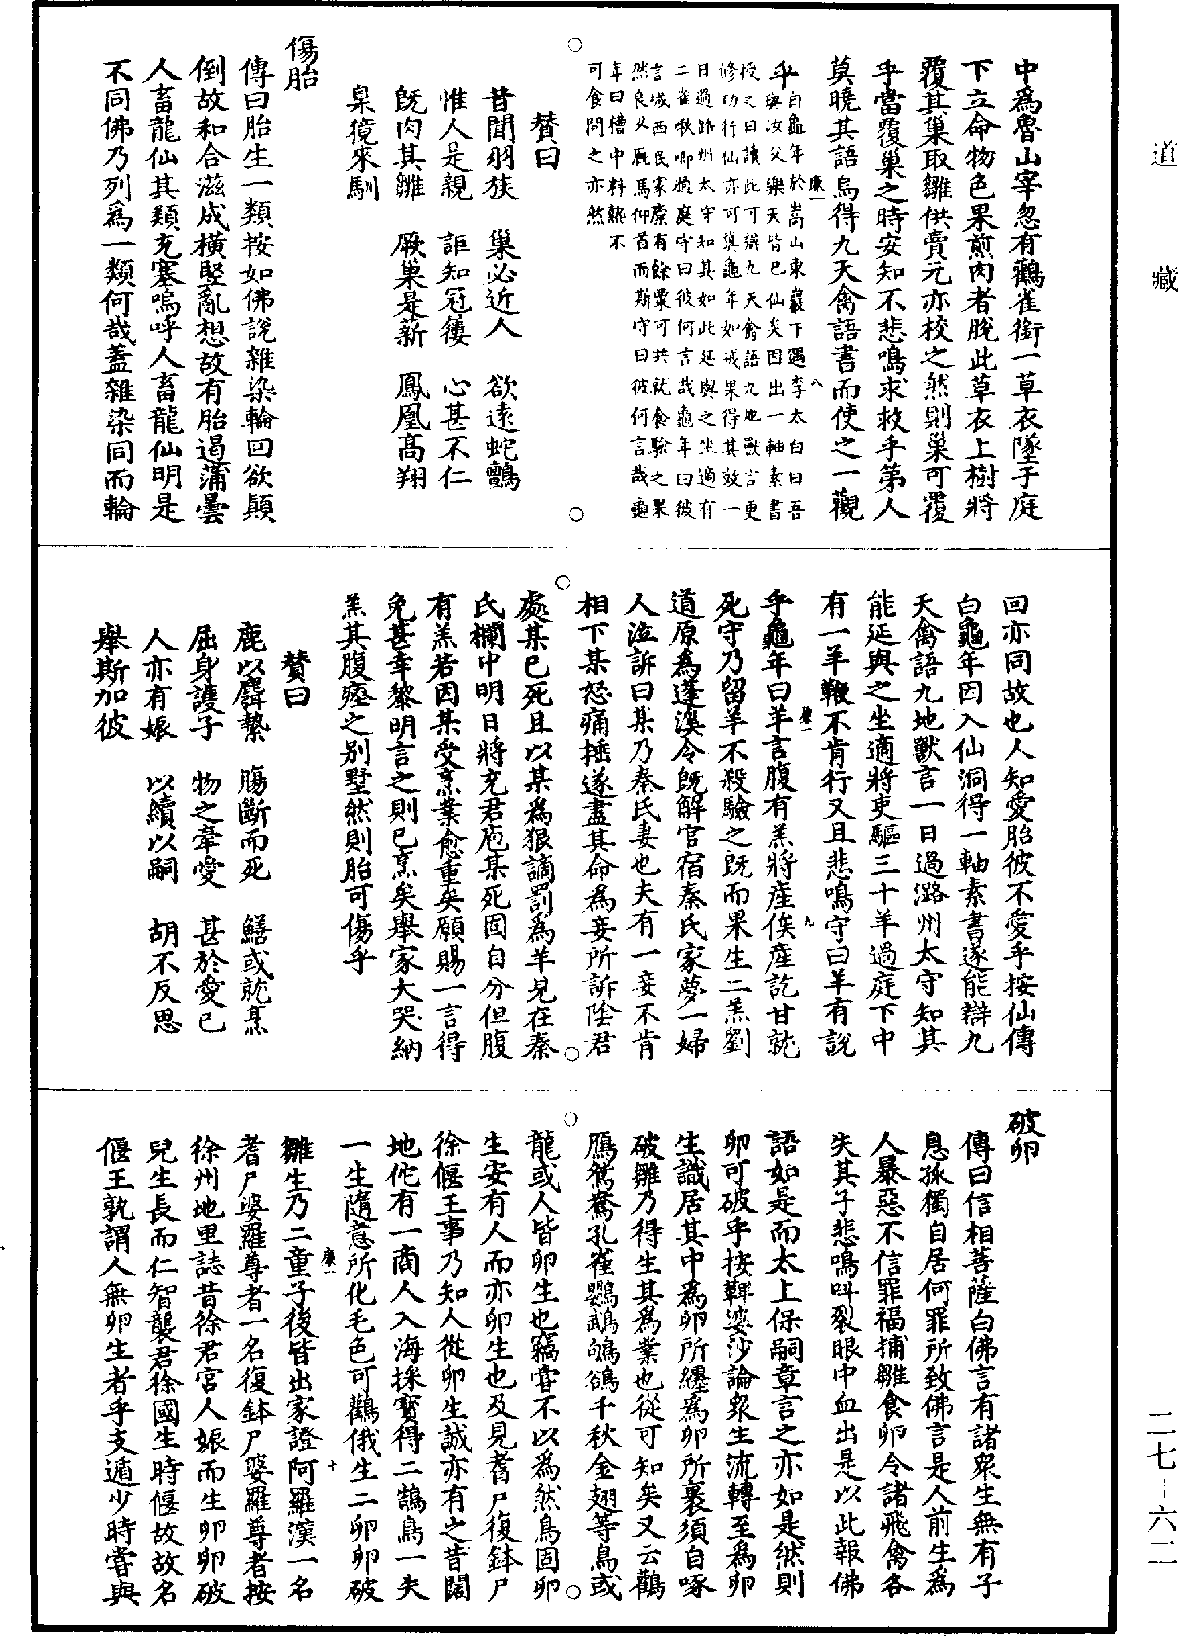 道藏
二七-六二
中為魯山宰忽有鸛雀銜一草衣墜子庭
下立命物色果煎肉者脫此草衣上樹將
覆其巢取雛供賣元亦校之然則巢可覆
乎當覆巢之時安知不悲鳴求救乎第人
莫曉其語烏得九天禽語書而使之一觀
乎
白龜年於嵩山東巖下遇李太白曰吾
與汝父樂天皆已仙矣因出一軸素書
授之曰讀此可辯九天禽語九地獸言更
修功行仙亦可冀龜年如戒果得其效一
日過潞州太守知其如此延與之坐適有
二雀啾唧噪庭守曰彼何言哉龜年曰彼
言城西民家廩有餘粟可共就食驗之果
然良久厩馬仰首而斯守曰彼何言哉龜
年曰槽中料熱不
可食問之亦然
贊曰
昔聞羽族　巢必近人　欲遠蛇鸇
惟人是親　詎知冠褸　心甚不仁
既肉其雛　厥巢是薪　鳳凰高翔
梟獍來馴
傷胎
傳曰胎生一類按如佛說雜染輪回欲顛
倒故和合滋成橫豎亂想故有胎遏蒲曇
人畜龍仙其類充塞嗚呼人畜龍仙明是
不同佛乃列為一類何哉蓋雜染同而輪
回亦同故也人知愛胎彼不愛乎按仙傳
白龜年因入仙洞得一軸素書遂能辯九
天禽語九地獸言一日過潞州太守知其
能延與之坐適將吏驅三十羊過庭下中
有一羊鞭不肯行又且悲鳴守曰羊有說
乎龜年曰羊言腹有羔將產俟產訖甘就
死守乃留羊不殺驗之既而果生二羔劉
道原為蓬溪令既解官宿秦氏家夢一婦
人泣訴曰某乃秦氏妻也夫有一妾不肯
相下某怒痛捶遂盡其命為妾所訴陰君
處某已死且以某為狠謫罰為羊見在秦
氏欄中明日將充君庖某死固自分但腹
有羔若因某受烹業愈重矣願賜一言得
免甚幸黎明言之則已烹矣舉家大哭納
羔其腹瘞之別墅然則胎可傷乎
贊曰
鹿以麛縶　腸斷而死　鱔或就烹
屈身護子　物之牽愛　甚於愛己
人亦有娠　以續以嗣　胡不反思
舉斯加彼
破卵
傳曰信相菩薩白佛言有諸眾生無有子
息孤獨自居何罪所致佛言是人前生為
人暴惡不信罪福捕雛食卵令諸飛禽各
失其子悲鳴叫裂眼中血出是以此報佛
語如是而太上保嗣章言之亦如是然則
卵可破乎按鞞婆沙論眾生流轉至為卵
生識居其中為卵所纏為卵所裹須自啄
破雛乃得生其為業也從可知矣又云鸛
鴈鴛鴦孔雀鸚鵡鴝鵒千秋金翅等鳥或
龍或人皆卵生也竊嘗不以為然鳥固卵
生安有人而亦卵生也及見耆尸復鉢尸
徐偃王事乃知人從卵生誠亦有之昔閻
地佗有一商人入海採寶得二鵠鳥一失
一生隨意所化毛色可鸛俄生二卵卵破
雛生乃二童子後皆出家證阿羅漢一名
耆尸婆羅尊者一名復鉢尸婆羅尊者按
徐州地里誌昔徐君宮人娠而生卵卵破
兒生長而仁智襲君徐國生時偃故故名
偃王孰謂人無卵生者乎支遁少時嘗與